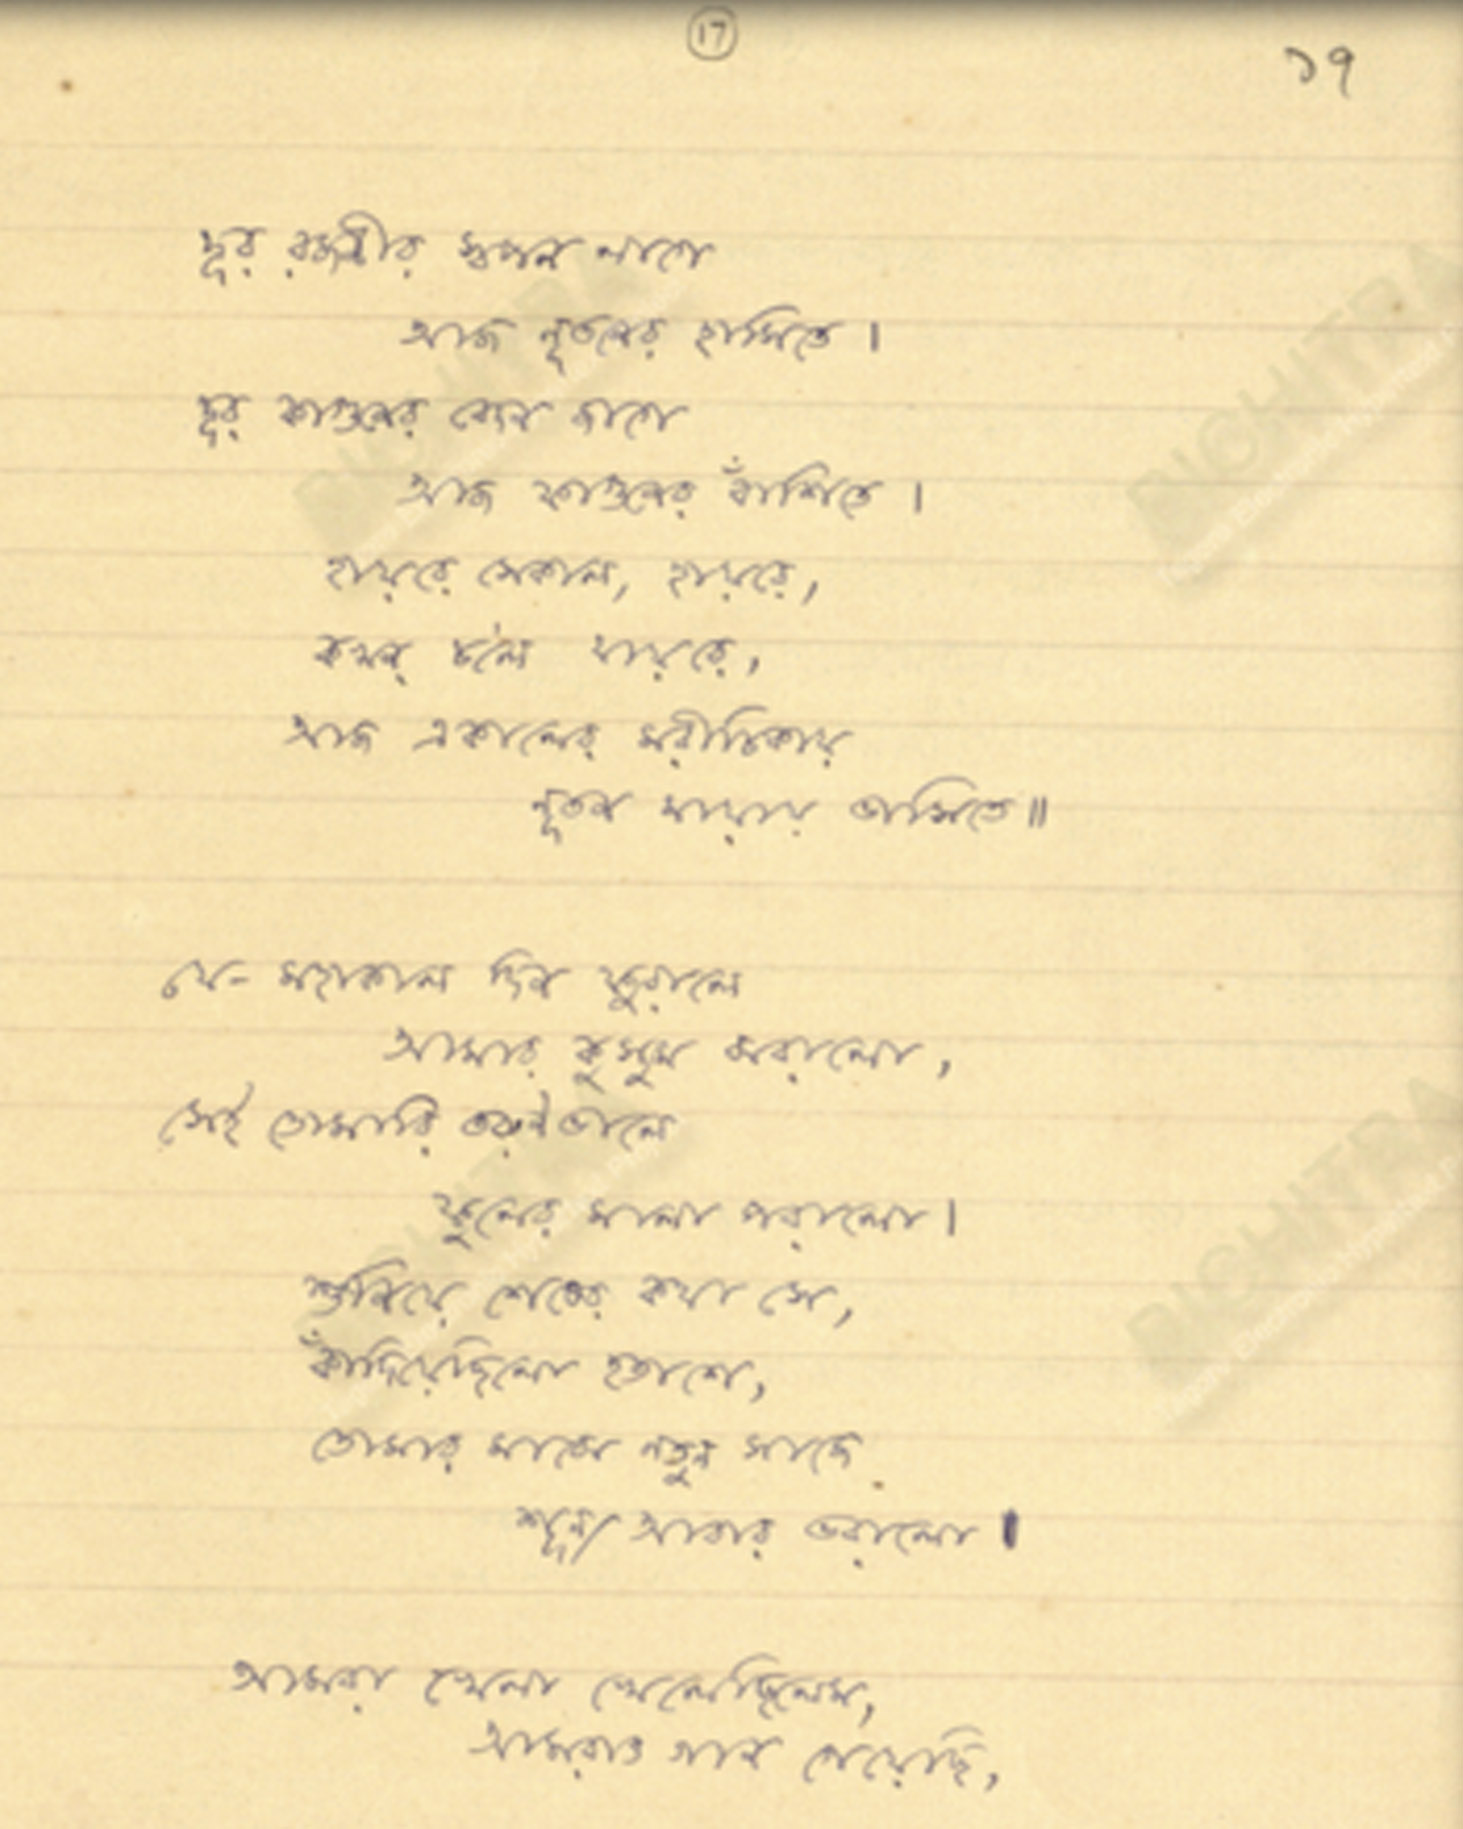 17
১৭
দূর রজনীর স্বপন লাগে
আজ নূতনের হাসিতে।
দূর ফাগুনের বেদন জাগে
আজ ফাগুনের বাঁশিতে।
হায়রে সেকাল, হায়রে,
কখন্ চলে যায়রে,
আজ একালের মরীচিকায়
নূতন মায়ায় ভাসিতে॥
যে-মহাকাল দিন ফুরালে
আমার কুসুম ঝরালো,
সেই তোমারি তরুণ ভালে
ফুলের মালা পরালো।
শুনিয়ে শেষের কথা সে,
কাঁদিয়েছিলো হতাশে,
তোমার মাঝে নতুন সাজে
শূন্য আবার ভরালো।
আমরা খেলা খেলেছিলেম,
আমরাও গান গেয়েছি,